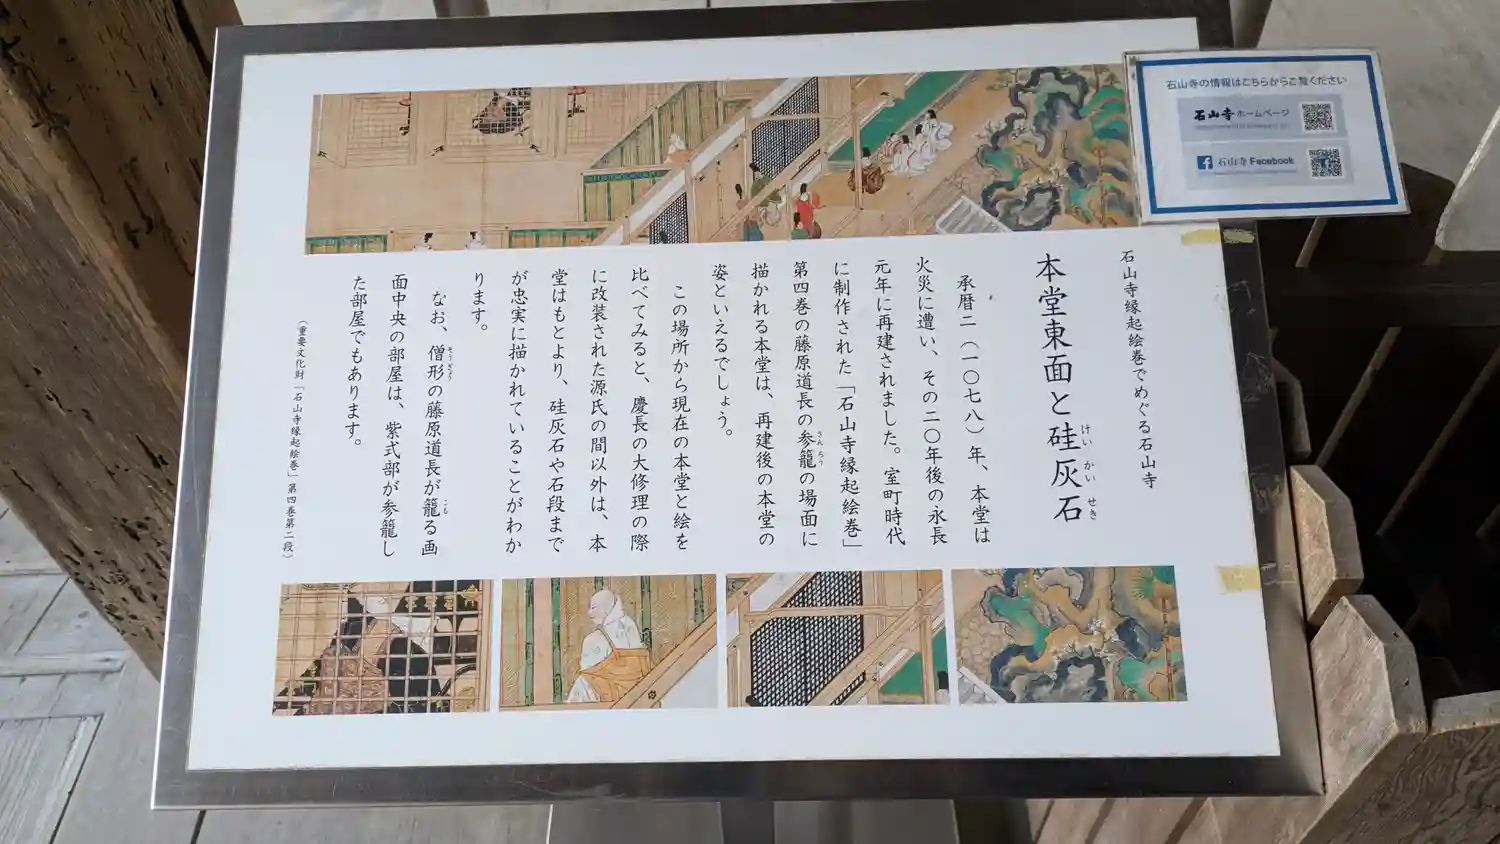 石山寺縁起絵巻でめぐる石山寺
本堂東面と硅灰石
けいかいせき
承暦二(一〇七八)年、本堂は
火災に遭い、その二〇年後の永長
元年に再建されました。室町時代
に制作された「石山寺縁起絵巻」
第四巻の藤原道長の参籠の場面に
さんろう
描かれる本堂は、再建後の本堂の
姿といえるでしょう。
この場所から現在の本堂と絵を
比べてみると、慶長の大修理の際
に改装された源氏の間以外は、本
堂はもとより、硅灰石や石段まで
が忠実に描かれていることがわか
ります。
なお、僧形の藤原道長が籠る画
そうぎょう
こも
面中央の部屋は、紫式部が参籠し
た部屋でもあります。
(重要文化財「石山寺縁起絵巻」第四巻第二段)
石山寺の情報はこちらからご覧ください
石山寺ホームページ
石山寺 Facebook